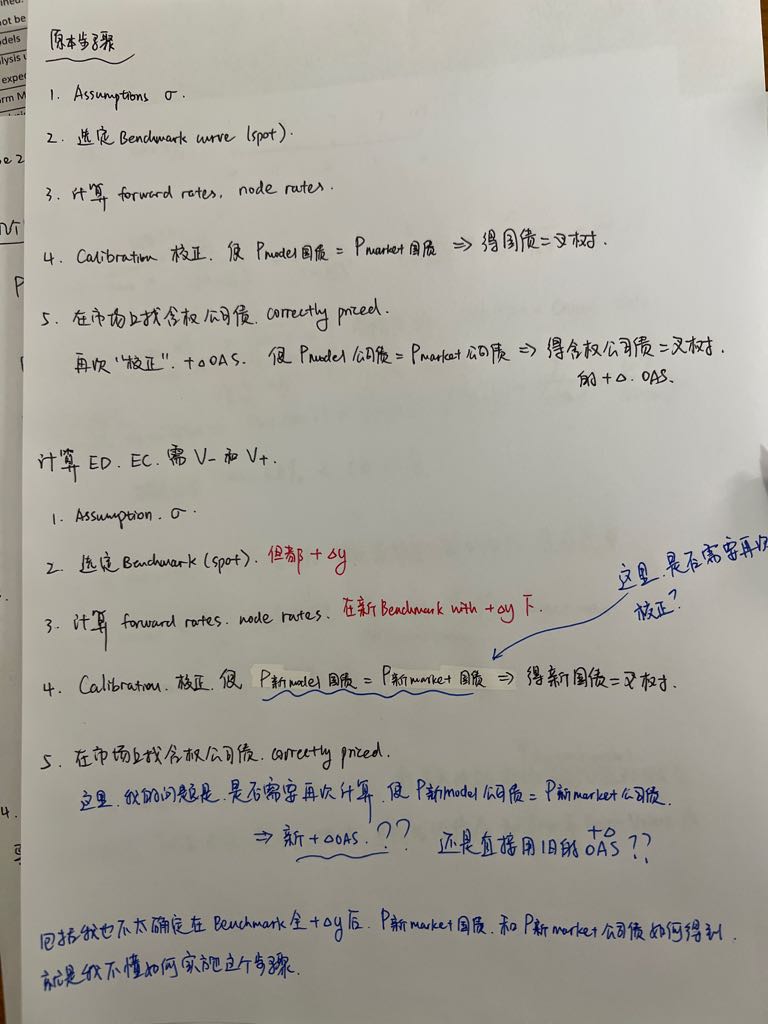 not be
dels
lysis u
expec
rm M
原本步骤
1. Assumptions σ.
2. 选定 Benchmark curve (spot).
3. 计算 forward rates, node rates.
4. Calibration 校正. 使 Pmodel国债 = Pmarket国债 ⇒ 得国债二叉树.
5. 在市场上找含权公司债. correctly priced.
再次"校正". +△OAS. 使 Pmodel公司债 = Pmarket公司债 ⇒ 得含权公司债二叉树.
的 +△. OAS.
计算 ED. EC. 需 V- 和 V+.
1. Assumption. σ.
2. 选定 Benchmark (spot). 但都 + △y
这里. 是否需要再次
校正?
3. 计算 forward rates. node rates. 在新Benchmark with +△y 下.
4. Calibration. 校正. 使 P新model国债 = P新market国债 ⇒ 得新国债二叉树.
5. 在市场上找含权公司债. correctly priced.
这里. 我的问题是. 是否需要再次计算. 使 P新model公司债 = P新market公司债.
⇒ 新 +△OAS. ?? 还是直接用旧的 +△OAS ??
包括我也不太确定在 Benchmark 全 +△y后. P新market国债. 和 P新market公司债 如何得到.
就是我不懂如何实施这个步骤.